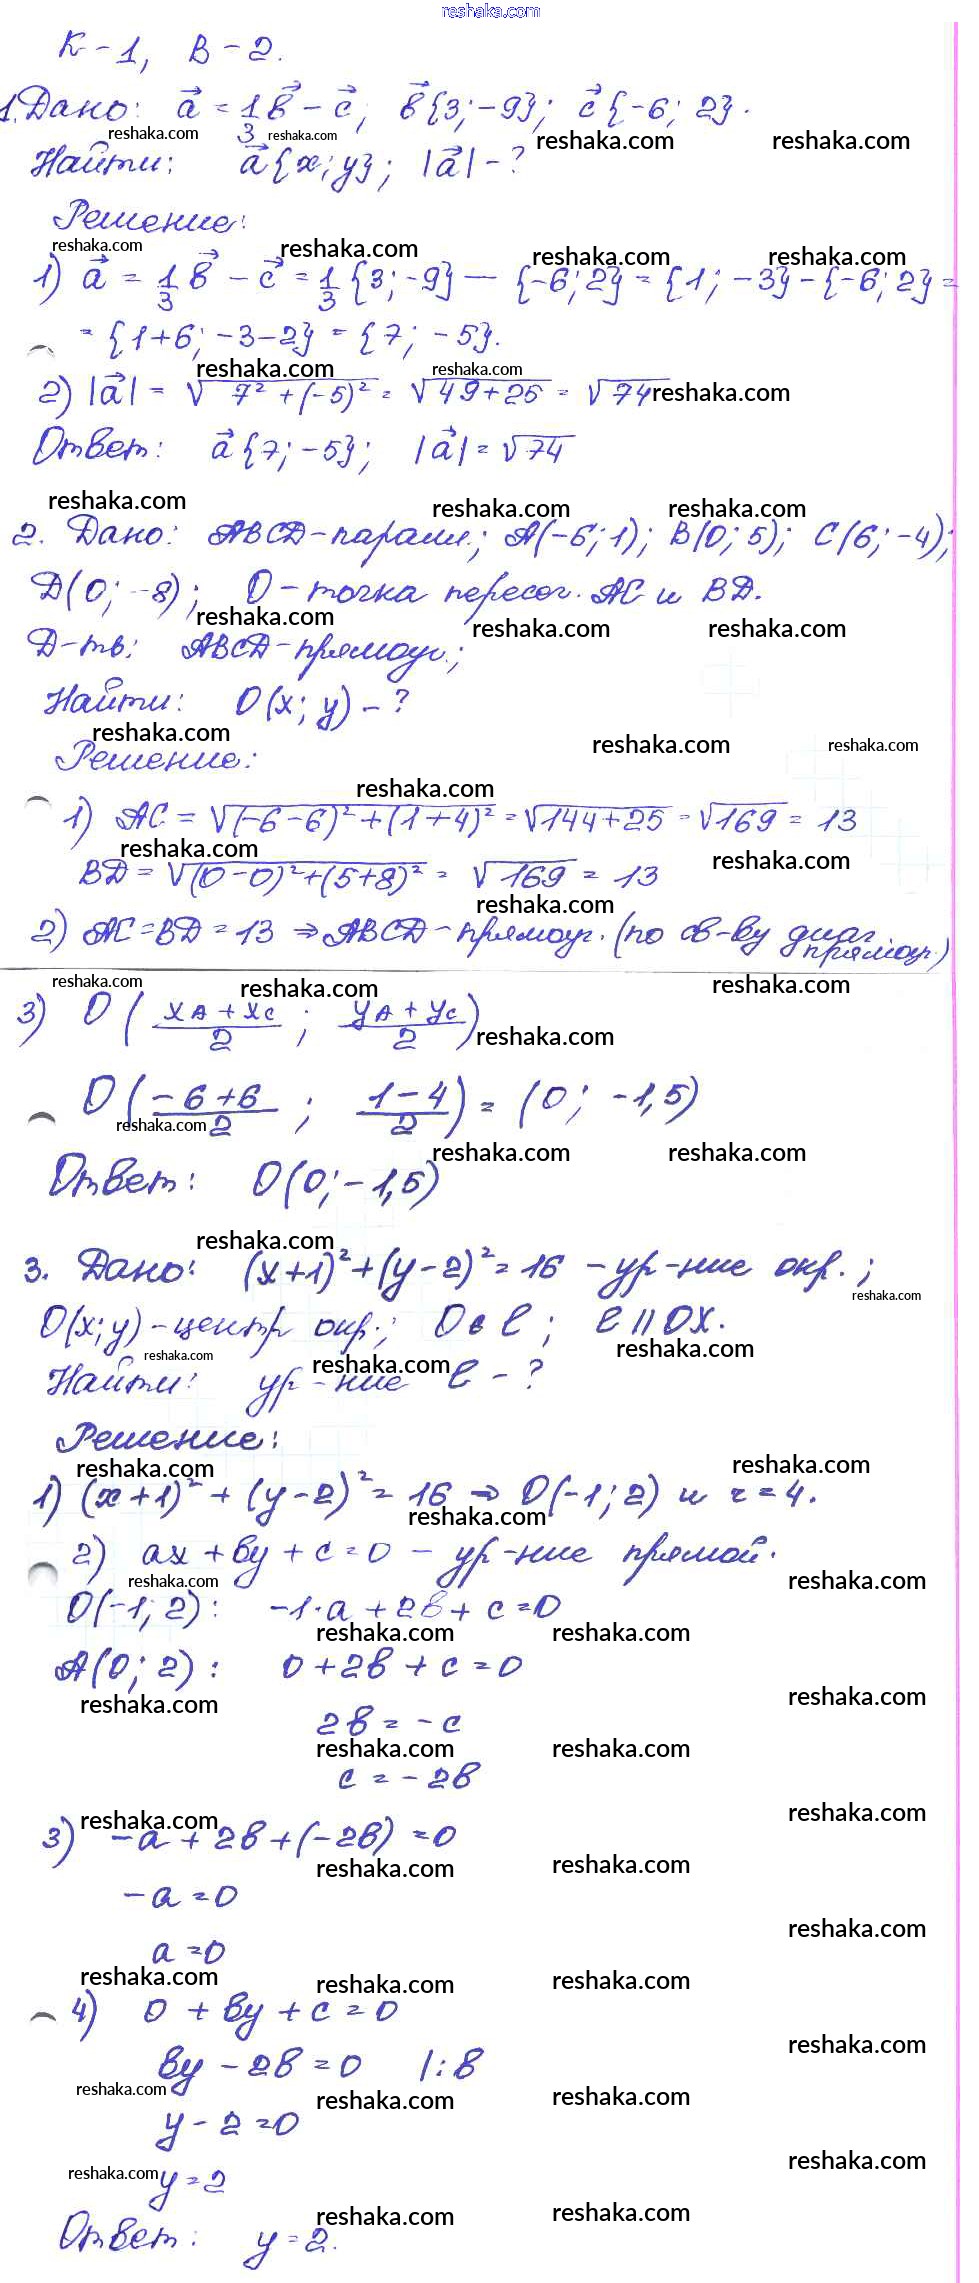 reshaka.com
К-1, В-2.
1. Дано: a⃗ = 1/3 b⃗ - c⃗; b⃗{3; -9}; c⃗{-6; 2}.
reshaka.com reshaka.com reshaka.com reshaka.com
Найти: a⃗{x; y}; |a⃗| - ?
Решение:
reshaka.com reshaka.com reshaka.com reshaka.com
1) a⃗ = 1/3 b⃗ - c⃗ = 1/3 {3; -9} — {-6; 2} = {1; -3} - {-6; 2} =
= {1+6; -3-2} = {7; -5}.
reshaka.com reshaka.com
2) |a⃗| = √(7² + (-5)²) = √(49+25) = √74 reshaka.com
Ответ: a⃗{7; -5}; |a⃗| = √74
reshaka.com reshaka.com reshaka.com
2. Дано: ABCD-паралл.; A(-6; 1); B(0; 5); C(6; -4);
D(0; -8); O - точка пересеч. AC и BD.
reshaka.com reshaka.com reshaka.com
Д-ть: ABCD-прямоуг.;
Найти: O(x; y) - ?
reshaka.com reshaka.com reshaka.com
Решение:
reshaka.com
1) AC = √((-6-6)² + (1+4)²) = √(144+25) = √169 = 13
reshaka.com reshaka.com
BD = √((0-0)² + (5+8)²) = √169 = 13
reshaka.com
2) AC = BD = 13 ⇒ ABCD-прямоуг. (по св-ву диаг. прямоуг.)
reshaka.com reshaka.com reshaka.com
3) O((x_A + x_C)/2; (y_A + y_C)/2) reshaka.com
O((-6+6)/2; (1-4)/2) = (0; -1,5)
reshaka.com reshaka.com reshaka.com
Ответ: O(0; -1,5)
reshaka.com
3. Дано: (x+1)² + (y-2)² = 16 - ур-ние окр.;
reshaka.com
O(x; y) - центр окр.; O ∈ ℓ; ℓ || OX.
reshaka.com reshaka.com reshaka.com
Найти: ур-ние ℓ - ?
Решение:
reshaka.com reshaka.com
1) (x+1)² + (y-2)² = 16 ⇒ O(-1; 2) и r = 4.
reshaka.com
2) ax + by + c = 0 - ур-ние прямой.
reshaka.com reshaka.com
O(-1; 2): -1·a + 2b + c = 0
reshaka.com reshaka.com
A(0; 2): 0 + 2b + c = 0
reshaka.com reshaka.com
2b = -c
reshaka.com reshaka.com
c = -2b
reshaka.com reshaka.com
3) -a + 2b + (-2b) = 0
reshaka.com reshaka.com
-a = 0
reshaka.com
a = 0
reshaka.com reshaka.com reshaka.com
4) 0 + by + c = 0
reshaka.com
by - 2b = 0 |:b
reshaka.com reshaka.com reshaka.com
y - 2 = 0
reshaka.com
reshaka.com y = 2
reshaka.com reshaka.com
Ответ: y = 2.